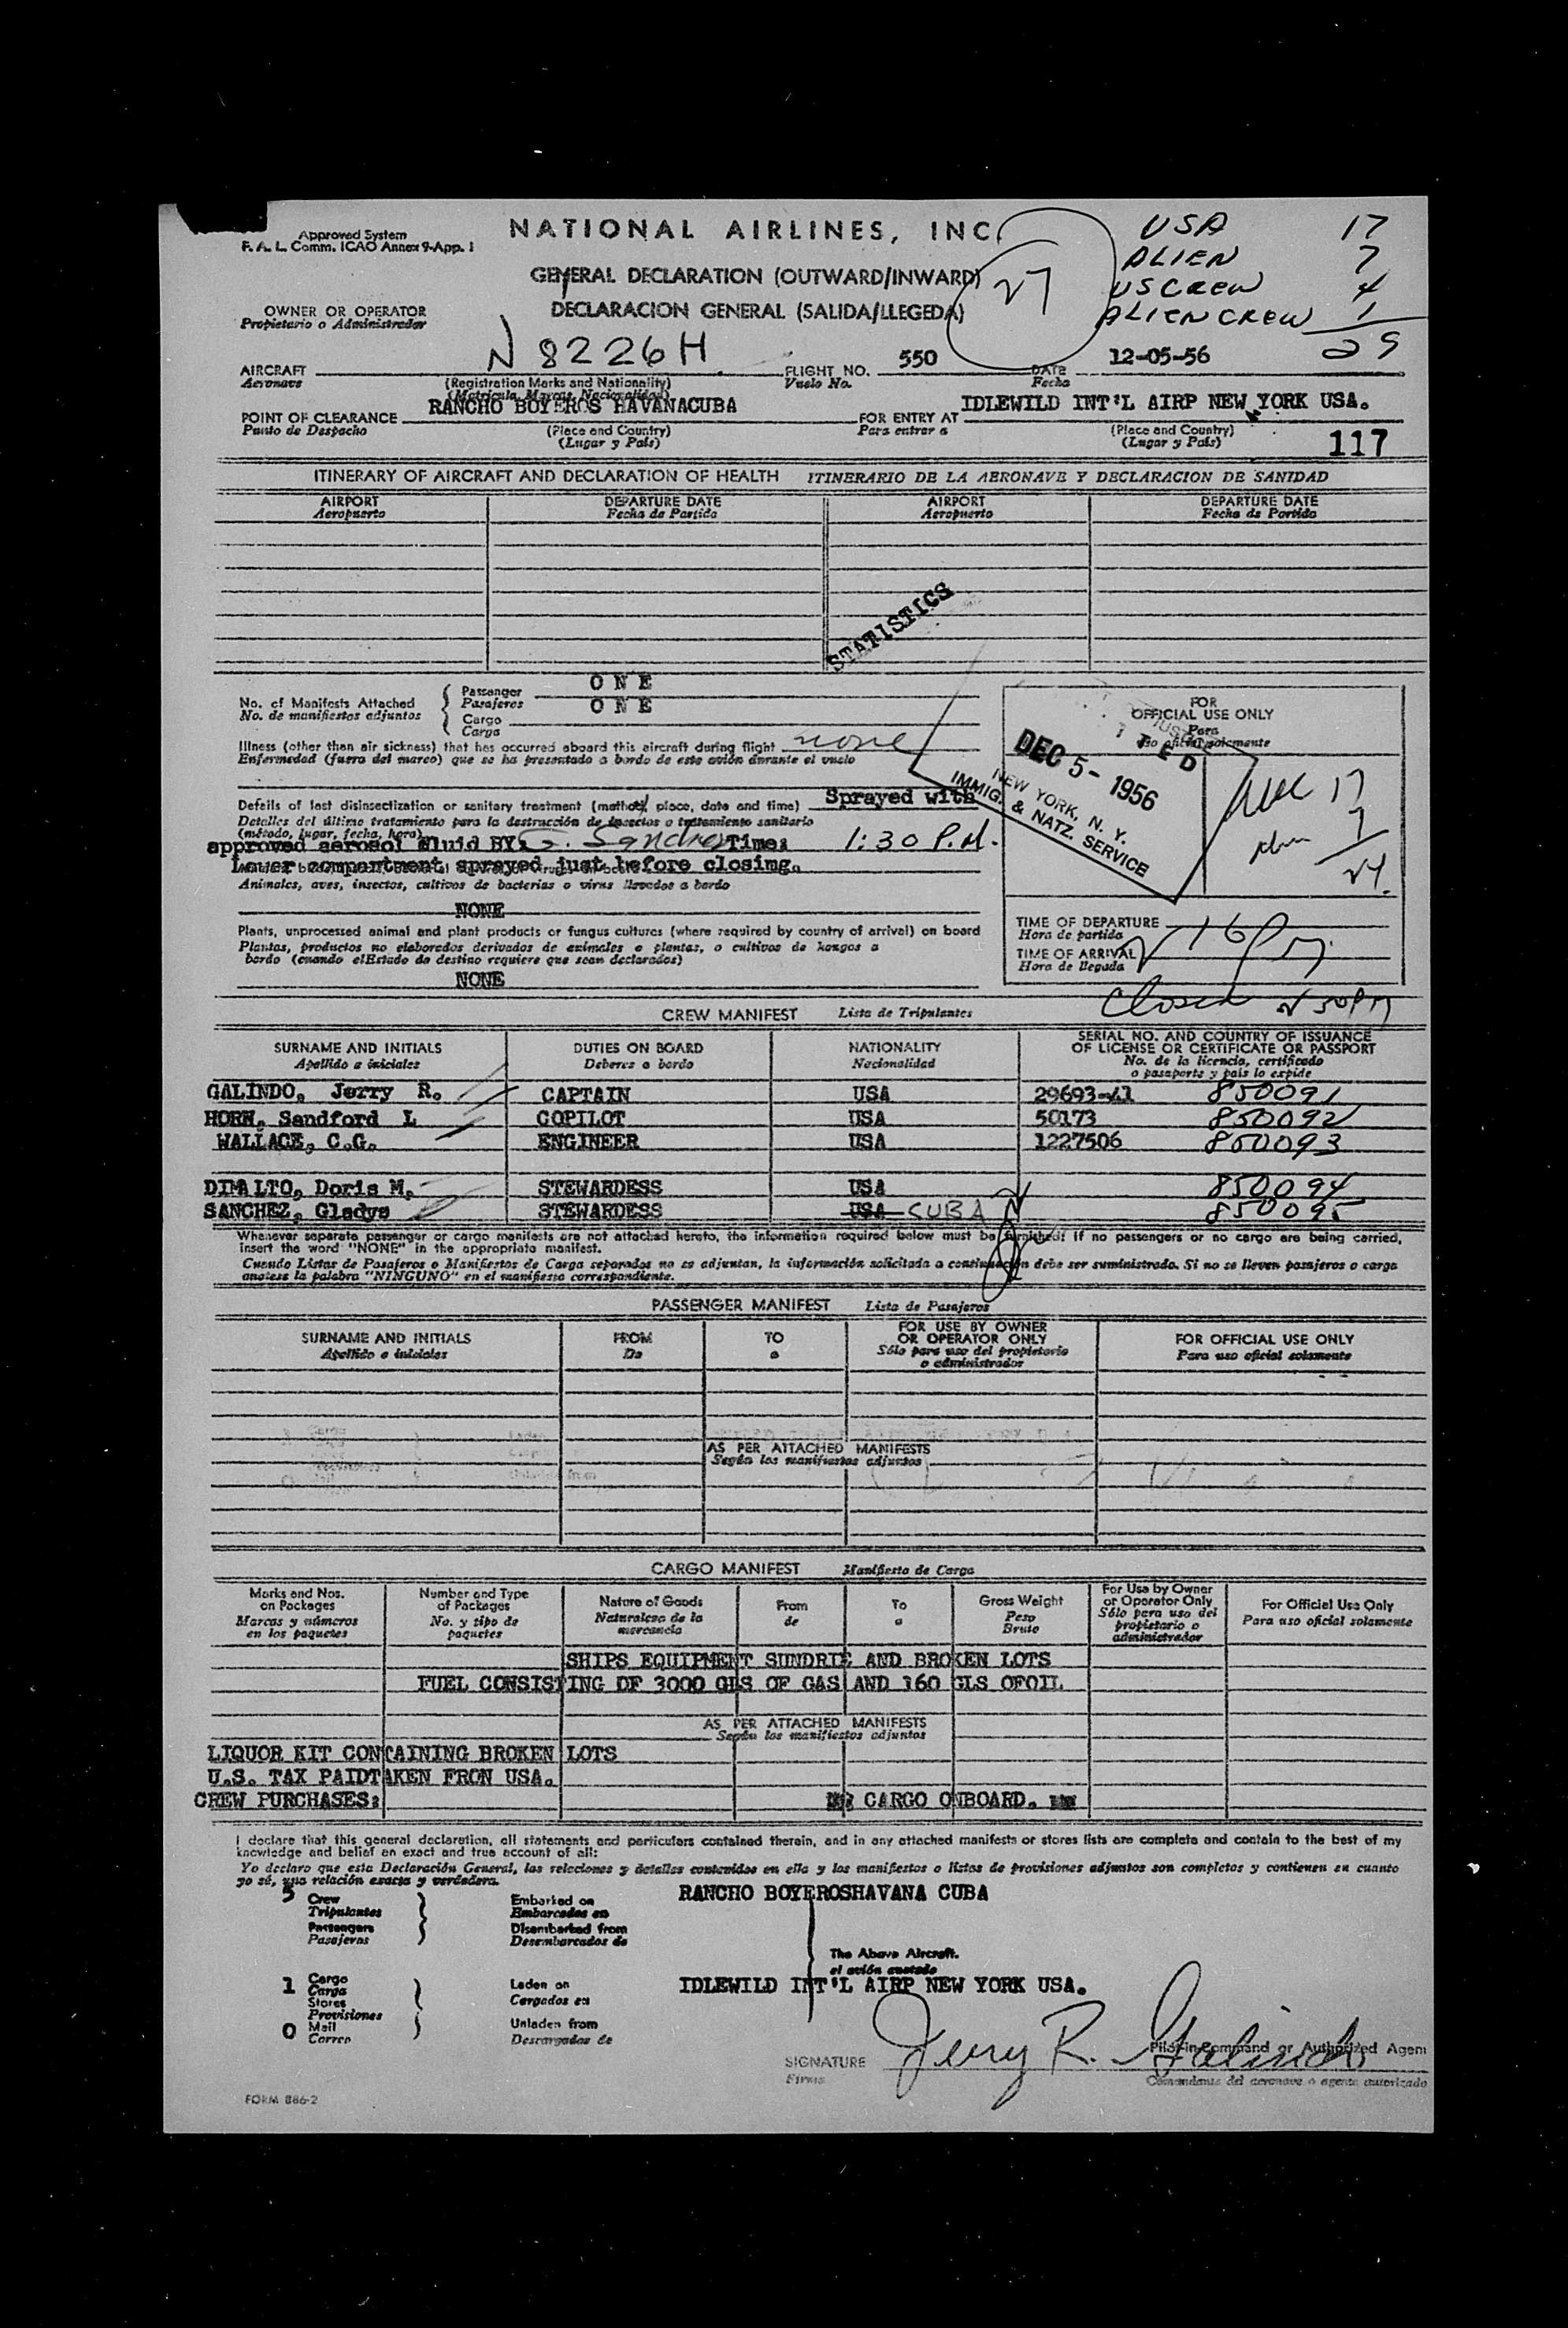 Approved System
F. A. L. Comm. ICAO Annex 9-App. 1
NATIONAL AIRLINES, INC.
GENERAL DECLARATION (OUTWARD/INWARD)
DECLARACION GENERAL (SALIDA/LLEGEDA)
USA 17
ALIEN 7
US CREW 4
ALIEN CREW 1
29
OWNER OR OPERATOR
Propietario o Administrador
AIRCRAFT N8226H FLIGHT NO. 550 DATE 12-05-56
Aeronave (Registration Marks and Nationality) Vuelo No. Fecha
(Matricula, Marcas, Nacionalidad)
POINT OF CLEARANCE RANCHO BOYEROS HAVANACUBA FOR ENTRY AT IDLEWILD INT'L AIRP NEW YORK USA.
Punto de Despacho (Place and Country) Para entrar a (Place and Country)
(Lugar y País) (Lugar y País)
117
ITINERARY OF AIRCRAFT AND DECLARATION OF HEALTH ITINERARIO DE LA AERONAVE Y DECLARACION DE SANIDAD
AIRPORT DEPARTURE DATE AIRPORT DEPARTURE DATE
Aeropuerto Fecha de Partida Aeropuerto Fecha de Partida
STATISTICS
No. of Manifests Attached Passenger ONE
No. de manifiestos adjuntos Pasajeros ONE
Cargo
Carga
Illness (other than air sickness) that has occurred aboard this aircraft during flight none
Enfermedad (fuera del mareo) que se ha presentado a bordo de este avión durante el vuelo
Details of last disinsectization or sanitary treatment (method, place, date and time) Sprayed with
Detalles del último tratamiento para la destrucción de insectos o tratamiento sanitario
(método, lugar, fecha, hora)
approved aerosol fluid BY: Time: 1:30 P.M.
Lower compartment sprayed just before closimg.
Animales, aves, insectos, cultivos de bacterias o virus llevados a bordo
NONE
Plants, unprocessed animal and plant products or fungus cultures (where required by country of arrival) on board
Plantas, productos no elaborados derivados de animales o plantas, o cultivos de hongos a
bordo (cuando elEstado de destino requiere que sean declarados)
NONE
FOR
OFFICIAL USE ONLY
Para
uso oficial solamente
DEC 5 - 1956
NEW YORK, N. Y.
IMMIG. & NATZ. SERVICE
17
7
TIME OF DEPARTURE
Hora de partida
TIME OF ARRIVAL
Hora de llegada
Closed
CREW MANIFEST Lista de Tripulantes
SURNAME AND INITIALS DUTIES ON BOARD NATIONALITY SERIAL NO. AND COUNTRY OF ISSUANCE
OF LICENSE OR CERTIFICATE OR PASSPORT
Apellido e iniciales Deberes a bordo Nacionalidad No. de la licencia, certificado
o pasaporte y país lo expide
GALINDO, Jerry R. CAPTAIN USA 29693-41 850091
HORN, Sandford L COPILOT USA 50173 850092
WALLACE, C.G. ENGINEER USA 1227506 850093
DIMALTO, Doris M. STEWARDESS USA 850094
SANCHEZ, Gladys STEWARDESS USA CUBA 850095
Whenever separate passenger or cargo manifests are not attached hereto, the information required below must be furnished: if no passengers or no cargo are being carried,
insert the word "NONE" in the appropriate manifest.
Cuando Listas de Pasajeros o Manifiestos de Carga separados no se adjuntan, la información solicitada a continuación debe ser suministrada. Si no se lleven pasajeros o carga
anótese la palabra "NINGUNO" en el manifiesto correspondiente.
PASSENGER MANIFEST Lista de Pasajeros
SURNAME AND INITIALS FROM TO FOR USE BY OWNER
OR OPERATOR ONLY FOR OFFICIAL USE ONLY
Apellido e iniciales De a Sólo para uso del propietario
o administrador Para uso oficial solamente
AS PER ATTACHED MANIFESTS
Según los manifiestos adjuntos
CARGO MANIFEST Manifiesto de Carga
Marks and Nos.
on Packages
Marcas y números
en los paquetes
Number and Type
of Packages
No. y tipo de
paquetes
Nature of Goods
Naturaleza de la
mercancía
From
de
To
a
Gross Weight
Peso
Bruto
For Use by Owner
or Operator Only
Sólo para uso del
propietario o
administrador
For Official Use Only
Para uso oficial solamente
SHIPS EQUIPMENT SUNDRIE AND BROKEN LOTS
FUEL CONSISTING OF 3000 GLS OF GAS AND 160 GLS OFOIL
AS PER ATTACHED MANIFESTS
Según los manifiestos adjuntos
LIQUOR KIT CONTAINING BROKEN LOTS
U.S. TAX PAIDTAKEN FRON USA.
CREW PURCHASES: CARGO ONBOARD.
I declare that this general declaration, all statements and particulars contained therein, and in any attached manifests or stores lists are complete and contain to the best of my
knowledge and belief an exact and true account of all:
Yo declaro que esta Declaración General, las relaciones y detalles contenidos en ella y los manifiestos o listas de provisiones adjuntos son completos y contienen en cuanto
yo sé, una relación exacta y verdadera.
5 Crew Embarked on RANCHO BOYEROSHAVANA CUBA
Tripulantes Embarcados en
Passengers Disembarked from
Pasajeros Desembarcados de
The Above Aircraft.
el avión anotado
1 Cargo Laden on IDLEWILD INT'L AIRP NEW YORK USA.
Carga Cargados en
Stores
Provisiones
0 Mail Unladen from
Correo Descargados de
SIGNATURE Jerry R. Galindo Pilot-in-Command or Authorized Agent
Firma Comandante del aeronave o agente autorizado
FORM 886-2